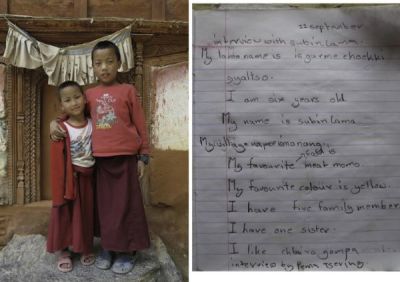 22 september
interview with subin lama.
My lama name is is gurme choekhi
gyaltso.
I am six years old
My name is subin lama.
My village
My favourite meat momo.
My favourite colour is yellow.
I have five family member
I have one sister.
I like chhairo gompa
interview by Pema Tsering.